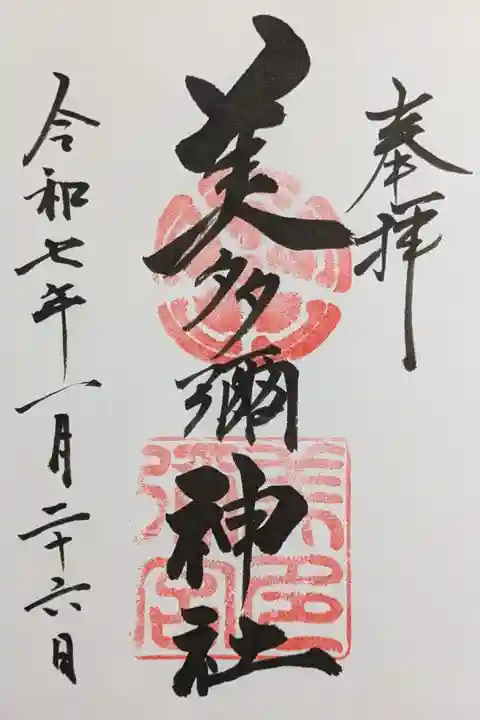 奉拝
美多彌神社
令和七年一月二十六日